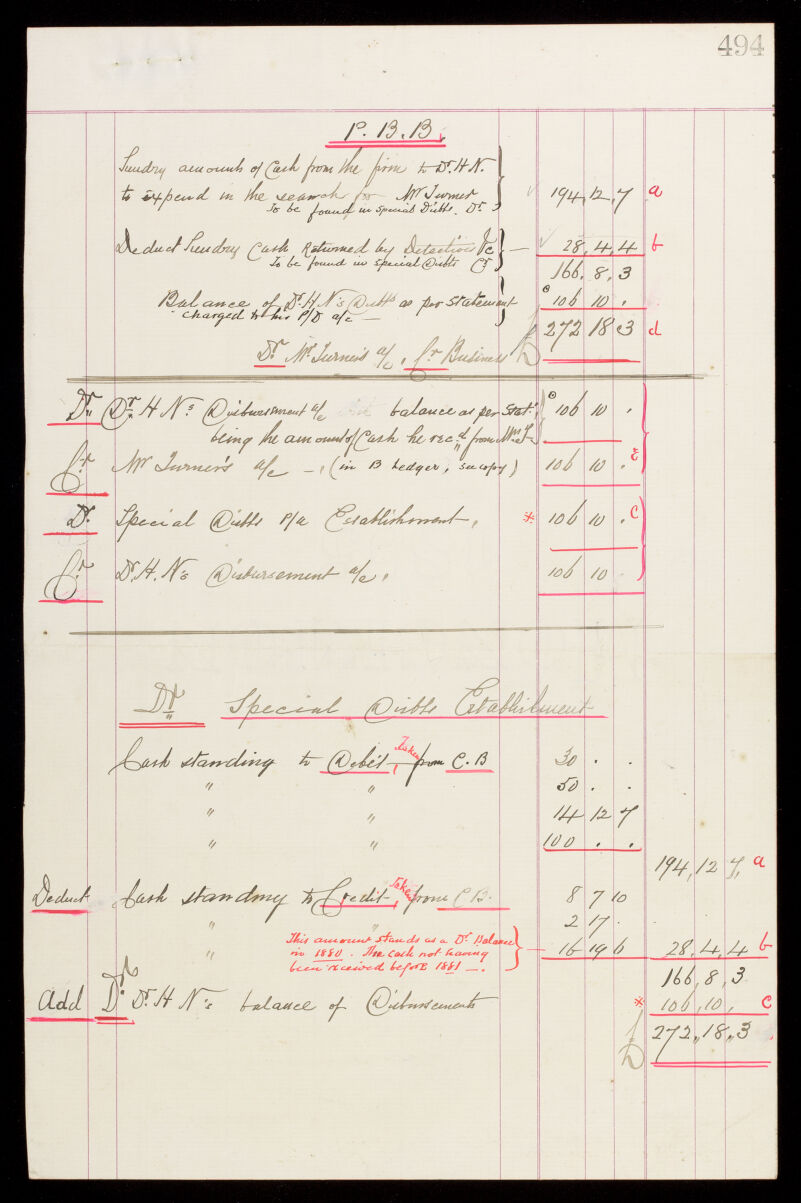 494
P. B. B.
Sundry amounts of Cash from the firm to Dr. H N.
to expend in the search for Mr Turner 194, 12, 7 a
To be found in special Disbts. Dr
Deduct Sundry Cash Returned by Detectives &c — 28, 4, 4 b
To be found in special Disbts Cr
166, 8, 3
Balance of Dr. H N's Disbts as per Statement c 106 10 .
charged to his P/D a/c —
£ 272 18 3 d
Dr Mr Turner's a/c, Cr Business
Dr. Dr. H N's Disbursement a/c balance as per Stat. c 106 10 .
being the amount of Cash he recd from Mrs T.
Cr Mr Turner's a/c —, (in B Ledger, see copy) 106 10 .
Dr. Special Disbts P/a Establishment, * 106 10 . C
Cr Dr. H. N's Disbursement a/c, 106 10
Dr Special Disbts Establishment
Cash standing to Debit, Taken from C. B 30 . .
" " 50 . .
" " 14 12 7
" " 100 . .
194, 12 7, a
Deduct Cash standing to Credit, Taken from C B. 8 7 10
" 2 17 .
This amount stands as a Dr Balance
" in 1880. The cash not having — 16 19 6 28, 4, 4 b
been received before 1881 —.
166, 8, 3
Add Dr. Dr. H N's balance of Disbursements * 106, 10, C
£ 272, 18, 3